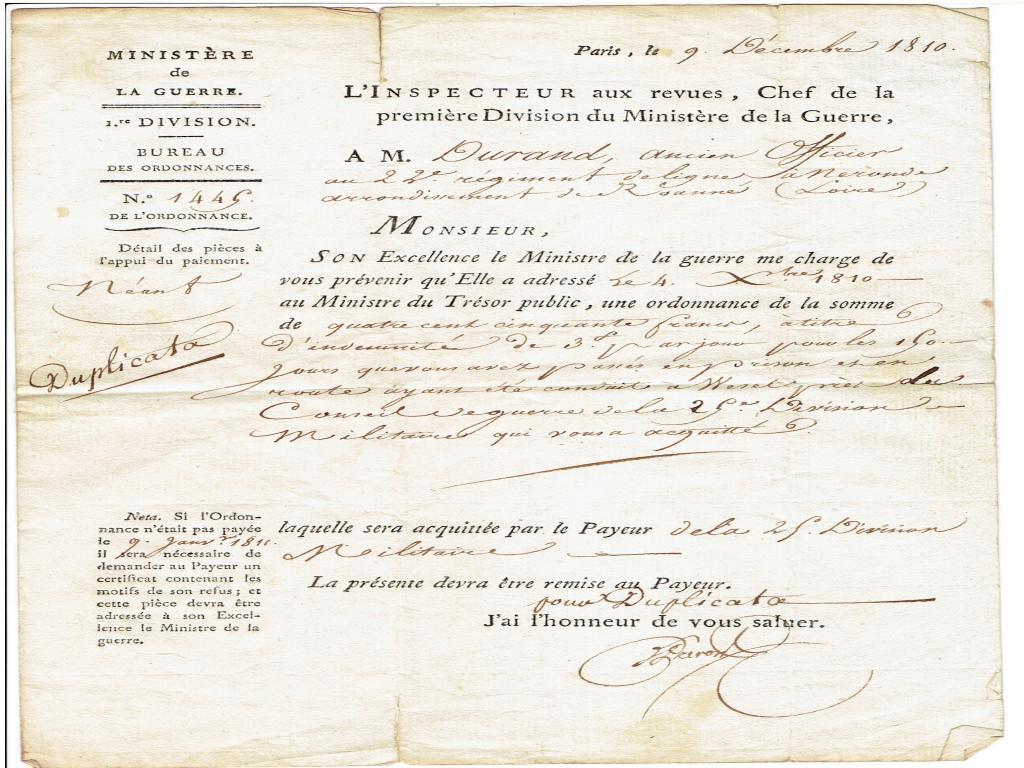 MINISTÈRE
de
LA GUERRE.
1.re DIVISION.
BUREAU
DES ORDONNANCES.
N.o 1445.
DE L'ORDONNANCE.
Détail des pièces à
l'appui du paiement.
Néant
Duplicata
Paris, le 9. Décembre 1810.
L'INSPECTEUR aux revues, Chef de la
première Division du Ministère de la Guerre,
A M. Durand, ancien Officier
au 22e. régiment de ligne, à Neronde
arrondissement de Roanne (Loire)
MONSIEUR,
SON Excellence le Ministre de la guerre me charge de
vous prévenir qu'Elle a adressé le 4. Xbre 1810
au Ministre du Trésor public, une ordonnance de la somme
de quatre cent cinquante francs, à titre
d'indemnité de 3.f par jour pour les 150.
jours que vous avez passés en prison et en
route ayant été conduit à Wesel près le
Conseil de guerre de la 25e. Division
Militaire qui vous a acquitté.
Nota. Si l'Ordon-
nance n'était pas payée
le 9. Janv.r 1811.
il sera nécessaire de
demander au Payeur un
certificat contenant les
motifs de son refus; et
cette pièce devra être
adressée à son Excel-
lence le Ministre de la
guerre.
laquelle sera acquittée par le Payeur de la 25e. Division
Militaire
La présente devra être remise au Payeur.
pour Duplicata
J'ai l'honneur de vous saluer.